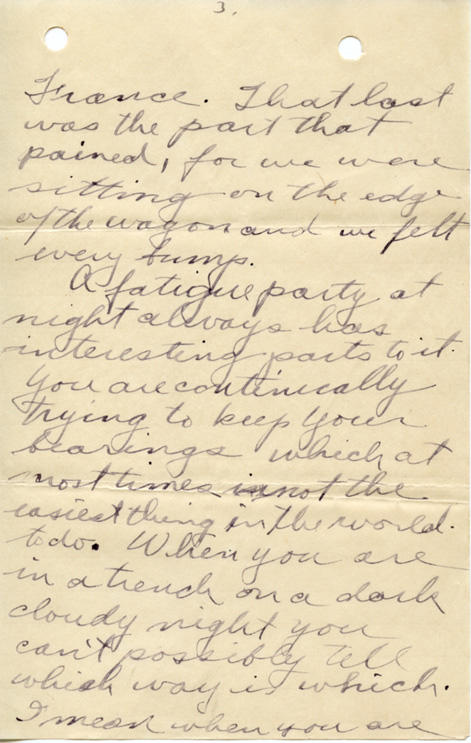 3.
France. That last
was the part that
pained, for we were
sitting on the edge
of the wagon and we felt
every bump.
A fatigue party at
night always has
interesting parts to it.
You are continually
trying to keep your
bearings which at
most times is not the
easiest thing in the world
to do. When you are
in a trench on a dark
cloudy night you
can't possibly tell
which way is which.
I mean when you are